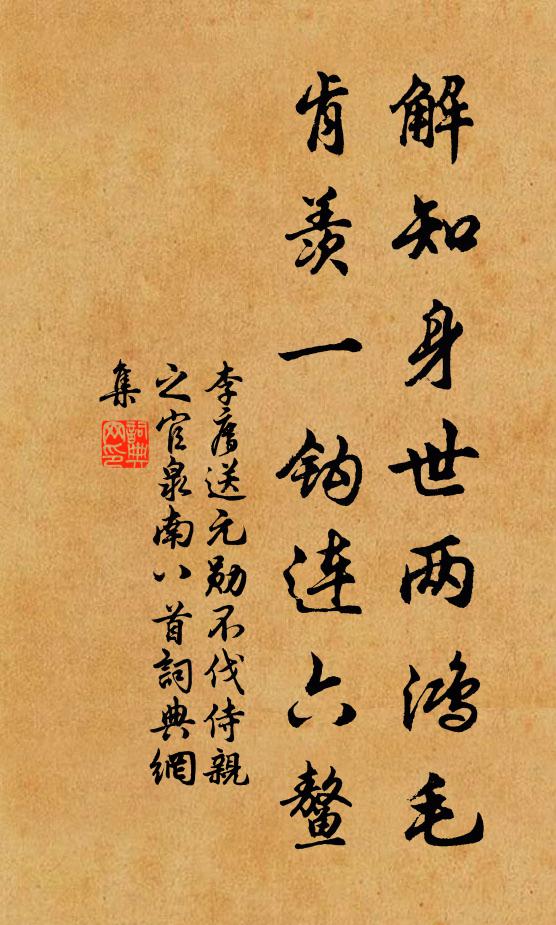 解知身世两鸿毛
肯羡一钩连六鳌
李廌送元勋不伐侍親
之官泉南八首詞典網
集
詞典
网印